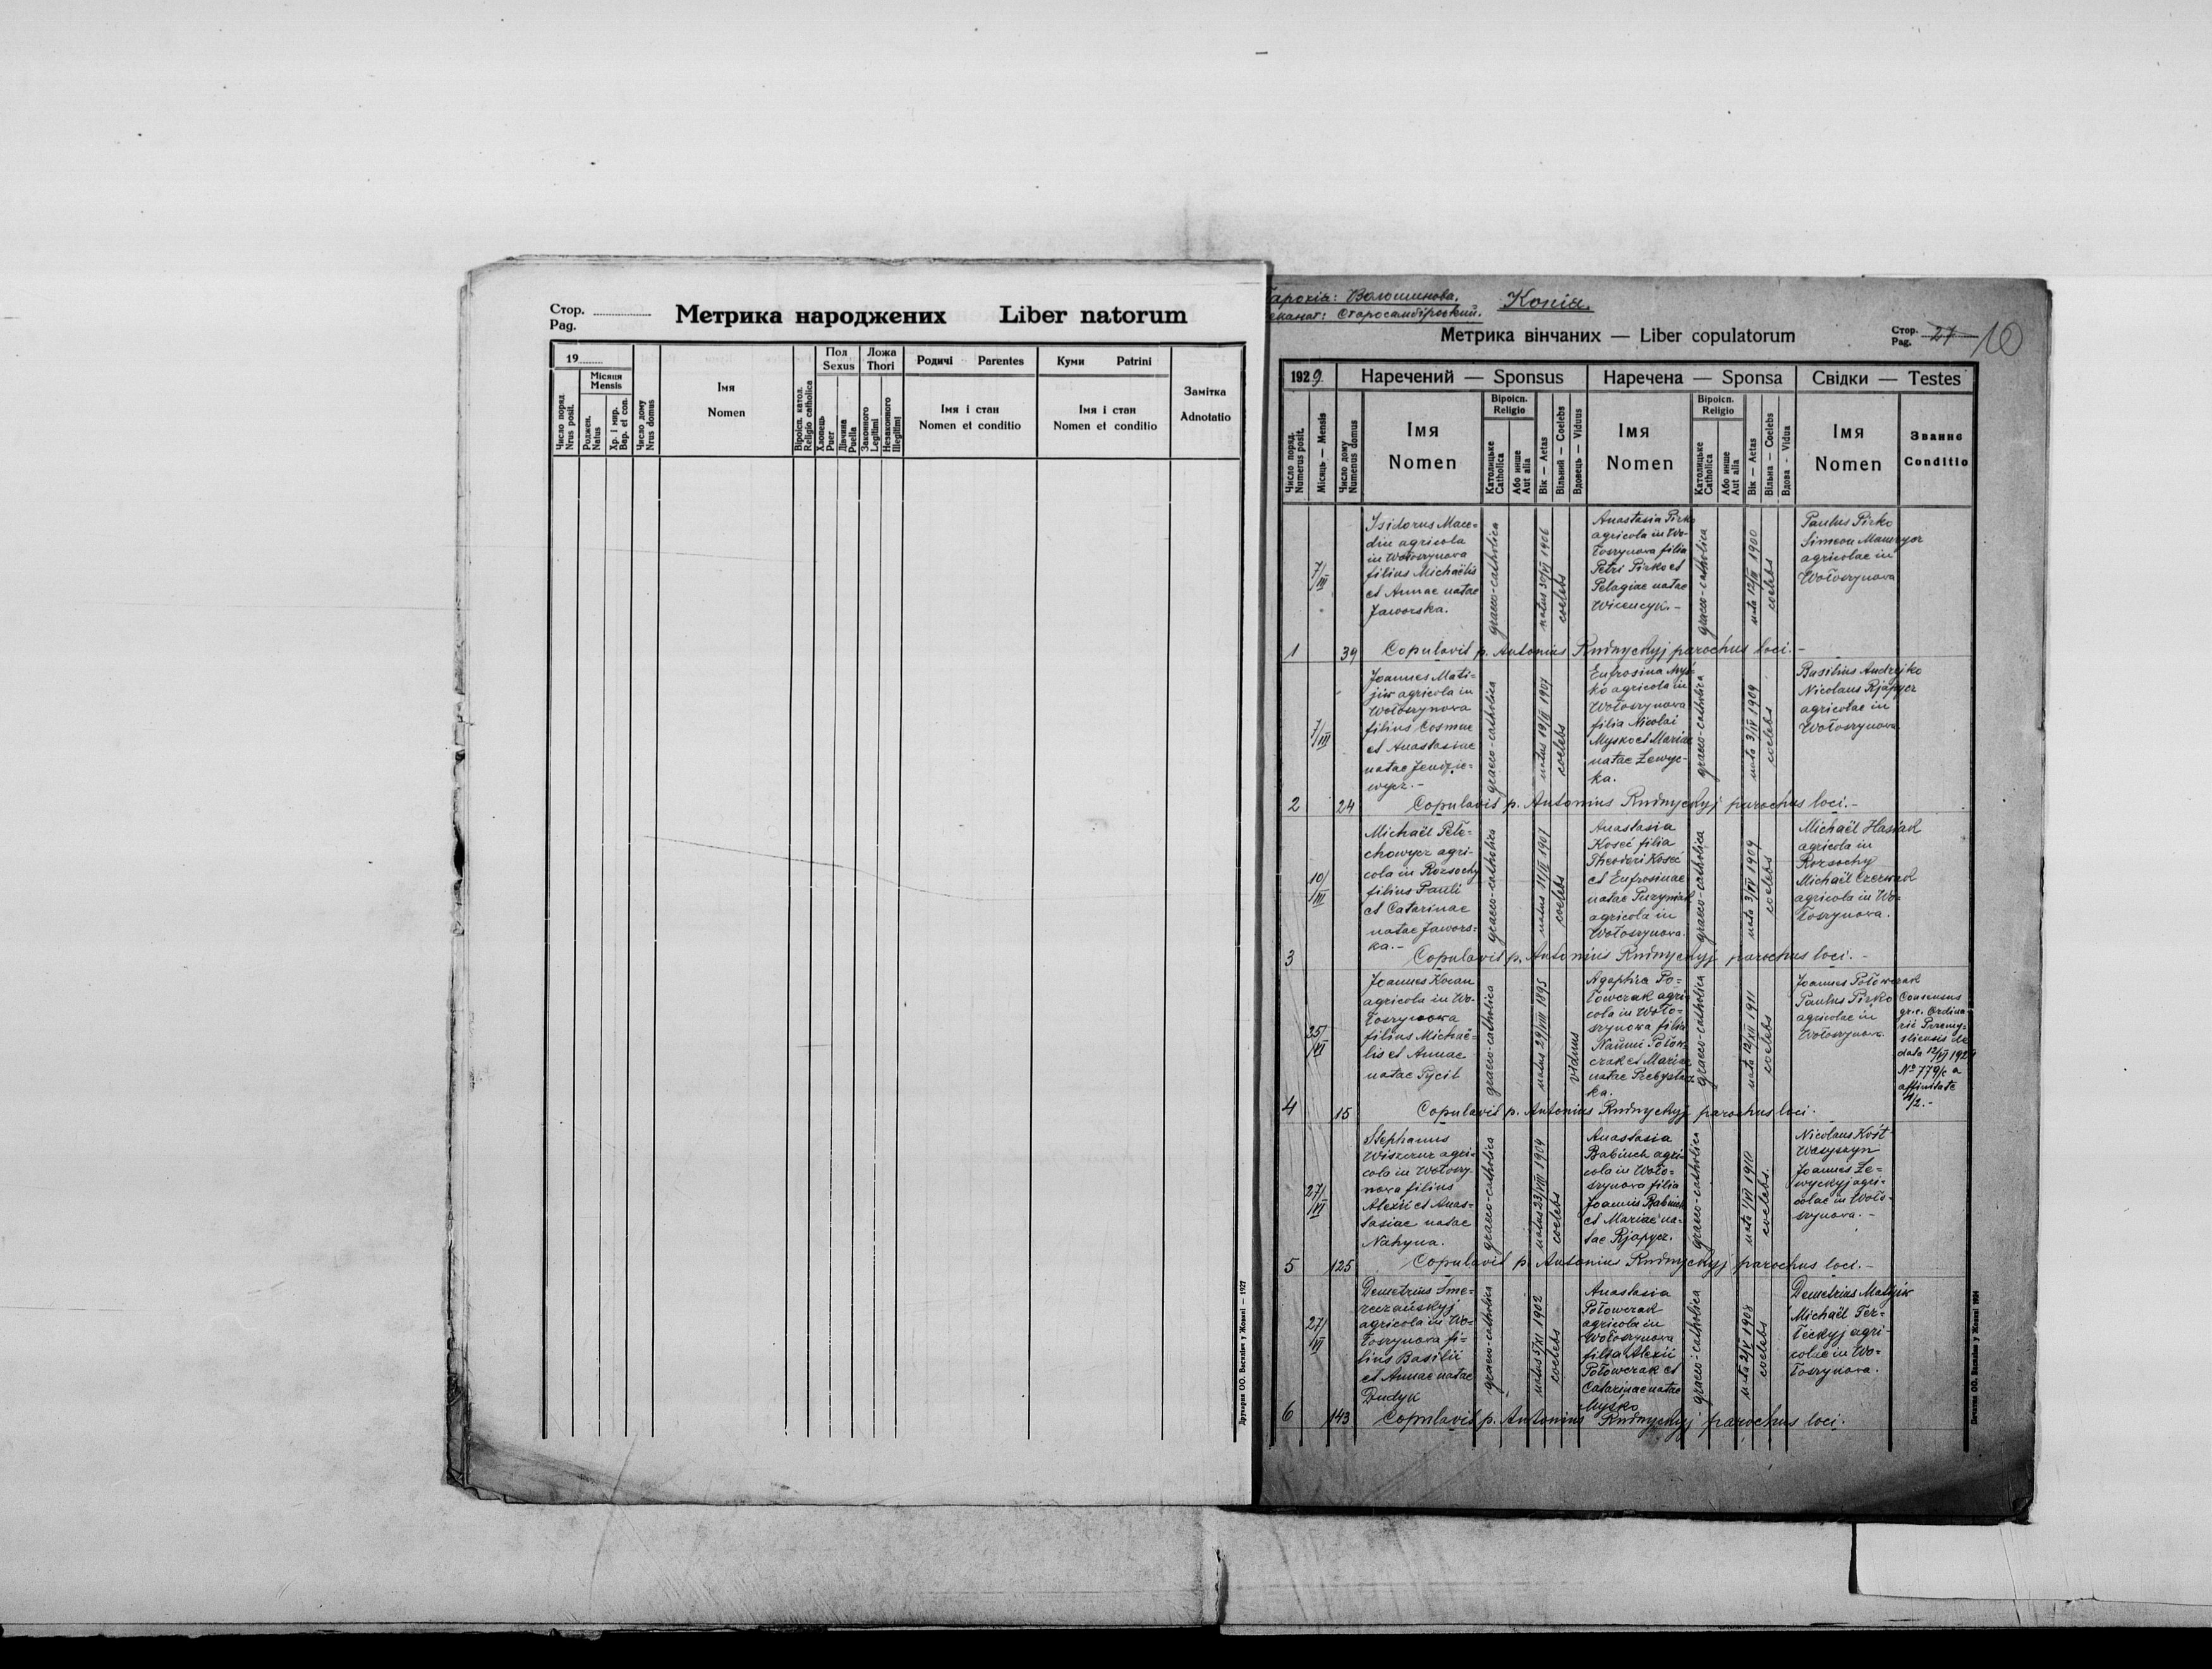 Стор.
Pag.
Метрика народжених Liber natorum
19
Число поряд.
Nrus posit.
Місяця
Mensis
Роджен.
Natus
Хр. і мир.
Bap. et con.
Число дому
Nrus domus
Імя
Nomen
Віроісп. катол.
Religio catholica
Пол
Sexus
Хлопець
Puer
Дівчина
Puella
Ложа
Thori
Законного
Legitimi
Незаконного
Illegitimi
Родичі Parentes
Імя і стан
Nomen et conditio
Куми Patrini
Імя і стан
Nomen et conditio
Замітка
Adnotatio
Друкарня ОО. Василіян у Жовкві — 1927
Парохія: Волошинова.
Деканат: Старосамбірський.
Копія.
Метрика вінчаних — Liber copulatorum
Стор.
Pag.
27
10
1929.
Наречений — Sponsus
Наречена — Sponsa
Свідки — Testes
Число поряд.
Numerus posit.
Місяць — Mensis
Число дому
Numenus domus
Імя
Nomen
Віроісп.
Religio
Католицьке
Catholica
Або инше
Aut alia
Вік — Aetas
Вільний — Coelebs
Вдовець — Viduus
Імя
Nomen
Віроісп.
Religio
Католицьке
Catholica
Або инше
Aut alia
Вік — Aetas
Вільна — Coelebs
Вдова — Vidua
Імя
Nomen
Званнє
Conditio
1
7/III
39
Isidorus Mace=
diu agricola
in Wołoszynowa
filius Michaëlis
et Annae natae
Jaworska.
graeco-catholica
natus 30/VI 1906
coelebs
Anastasia Pirko
agricola in Wo-
łoszynowa filia
Petri Pirko et
Pelagiae natae
Wicencyk.-
graeco-catholica
nata 12/III 1900
coelebs
Paulus Pirko
Simeon
agricolae in
Wołoszynowa
Copulavit p. Antonius Rudnyckyj parochus loci.-
2
7/III
24
Joannes Mati-
jiw agricola in
Wołoszynowa
filius Cosmae
et Anastasiae
natae
wycz.-
graeco-catholica
natus 19/II 1907
coelebs
Eufrosina Myś-
ko agricola in
Wołoszynowa
filia Nicolai
Mysko et Mariae
natae Lewyc-
ka.
graeco-catholica
nata 3/IV 1909
coelebs
Basilius Andrejko
Nicolaus Rjapycz
agricolae in
Wołoszynowa
Copulavit p. Antonius Rudnyckyj parochus loci.-
3
10/III
Michaël Pełe-
chowycz agri-
cola in Rozsochy
filius Pauli
et Catarinae
natae Jawors-
ka.-
graeco-catholica
natus 11/II 1901
coelebs
Anastasia
Koseć filia
Theodori Koseć
et Eufrosinae
natae Puzyniak
agricola in
Wołoszynowa.
graeco-catholica
nata 3/IV 1909
coelebs
Michaël Hasiak
agricola in
Rozsochy
Michaël Czerwak
agricola in Wo-
łoszynowa.
Copulavit p. Antonius Rudnyckyj parochus loci.-
4
25/VI
15
Joannes Kocan
agricola in Wo-
łoszynowa
filius Michaë-
lis et Annae
natae Pycit
graeco-catholica
natus 29/VIII 1895
viduus
Agaphia Po-
łowczak agri-
cola in Woło-
szynowa filia
Naumi Połow-
czak et Mariae
natae
ka.
graeco-catholica
nata 12/XII 1911
coelebs
Joannes Połowczak
Paulus Pirko
agricolae in
Wołoszynowa
Consensus
gr.c. Ordina-
rii Przemy-
sliensis de
data 12/VI 1929
№ 779/c a
affinitate
4/2.-
Copulavit p. Antonius Rudnyckyj parochus loci.
5
27/VI
125
Stephanus
Wiszczur agri-
cola in Wołoszy-
nowa filius
Alexii et Anas-
tasiae natae
Nahyna.
graeco-catholica
natus 23/VIII 1904
coelebs
Anastasia
Babinch agri-
cola in Woło-
szynowa filia
Joannis Babinch
et Mariae na-
tae Rjapycz.
graeco-catholica
nata 1/VI 1910
coelebs.
Nicolaus Kost
Wasyszyn
Joannes Le-
wyckyj agri-
colae in Woło-
szynowa.-
Copulavit p. Antonius Rudnyckyj parochus loci.-
6
27/VI
143
Demetrius Sme-
reczańskyj
agricola in Wo-
łoszynowa fi-
lius Basilii
et Annae natae
Dudyk
graeco-catholica
natus 5/XI 1902
coelebs
Anastasia
Połowczak
agricola in
Wołoszynowa
filia Alexii
Połowczak et
Catarinae natae
Myśko
graeco-catholica
nata 2/V 1908
coelebs
Demetrius Matijiw
Michaël Ter-
łeckyj agri-
colae in Wo-
łoszynowa.
Copulavit p. Antonius Rudnyckyj parochus loci.
Печатня ОО. Василіян у Жовкві 1924